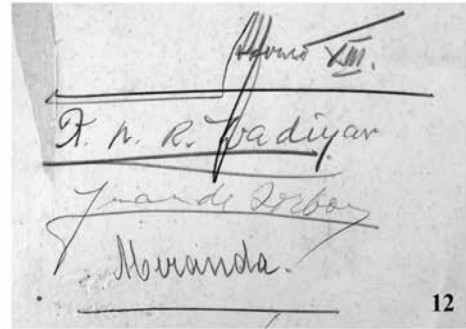 Alfonso XIII.
K. N. R. Wadiyar
Juan de Borbon
Miranda.
12